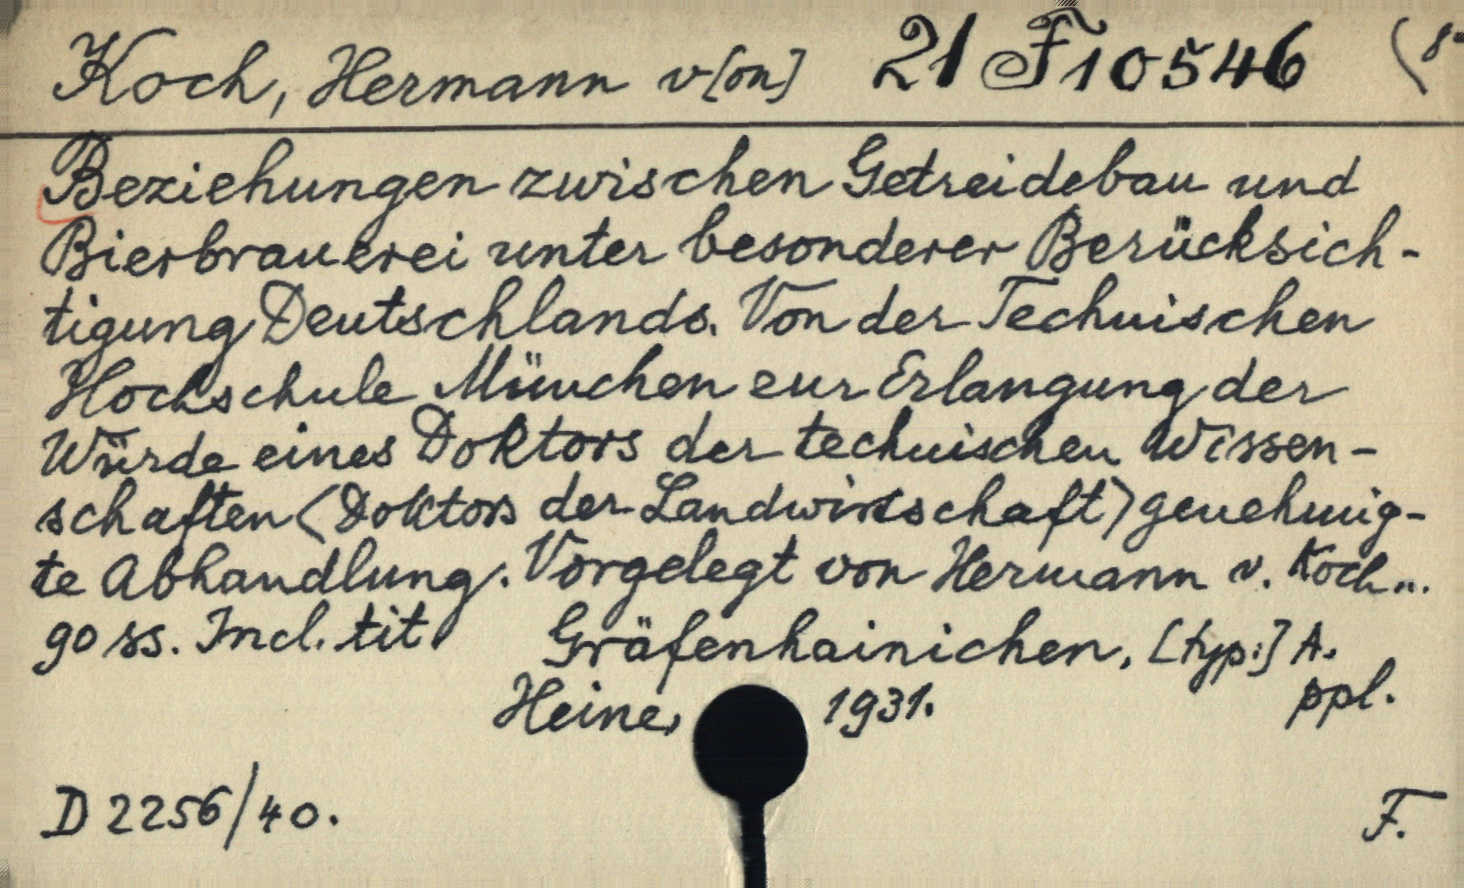 Koch, Hermann v[on] 21 F 10546 (8°
Beziehungen zwischen Getreidebau und
Bierbrauerei unter besonderer Berücksich-
tigung Deutschlands. Von der Technischen
Hochschule München zur Erlangung der
Würde eines Doktors der technischen Wissen-
schaften (Doktors der Landwirtschaft) genehmig-
te Abhandlung. Vorgelegt von Hermann v. Koch...
90 ss. Incl. tit. Gräfenhainichen, [typ:] A.
Heine, 1931. ppl.
D 2256/40. F.